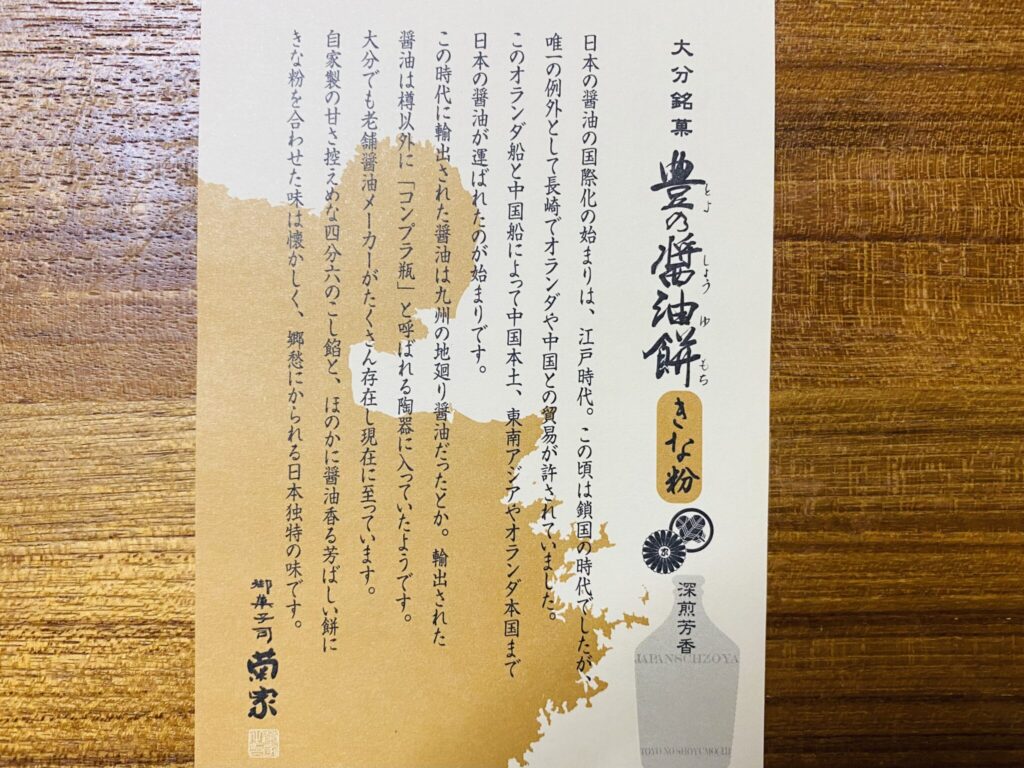 大分銘菓
豊の醤油餅
とよ
しょう
ゆ
もち
きな粉
深煎芳香
JAPANSCHZOYA
TOYO NO SHOYUMOCHI
日本の醤油の国際化の始まりは、江戸時代。この頃は鎖国の時代でしたが、
唯一の例外として長崎でオランダや中国との貿易が許されていました。
このオランダ船と中国船によって中国本土、東南アジアやオランダ本国まで
日本の醤油が運ばれたのが始まりです。
この時代に輸出された醤油は九州の地廻り醤油だったとか。輸出された
醤油は樽以外に「コンプラ瓶」と呼ばれる陶器に入っていたようです。
大分でも老舗醤油メーカーがたくさん存在し現在に至っています。
自家製の甘さ控えめな四分六のこし餡と、ほのかに醤油香る芳ばしい餅に
きな粉を合わせた味は懐かしく、郷愁にかられる日本独特の味です。
御菓子司
菊家